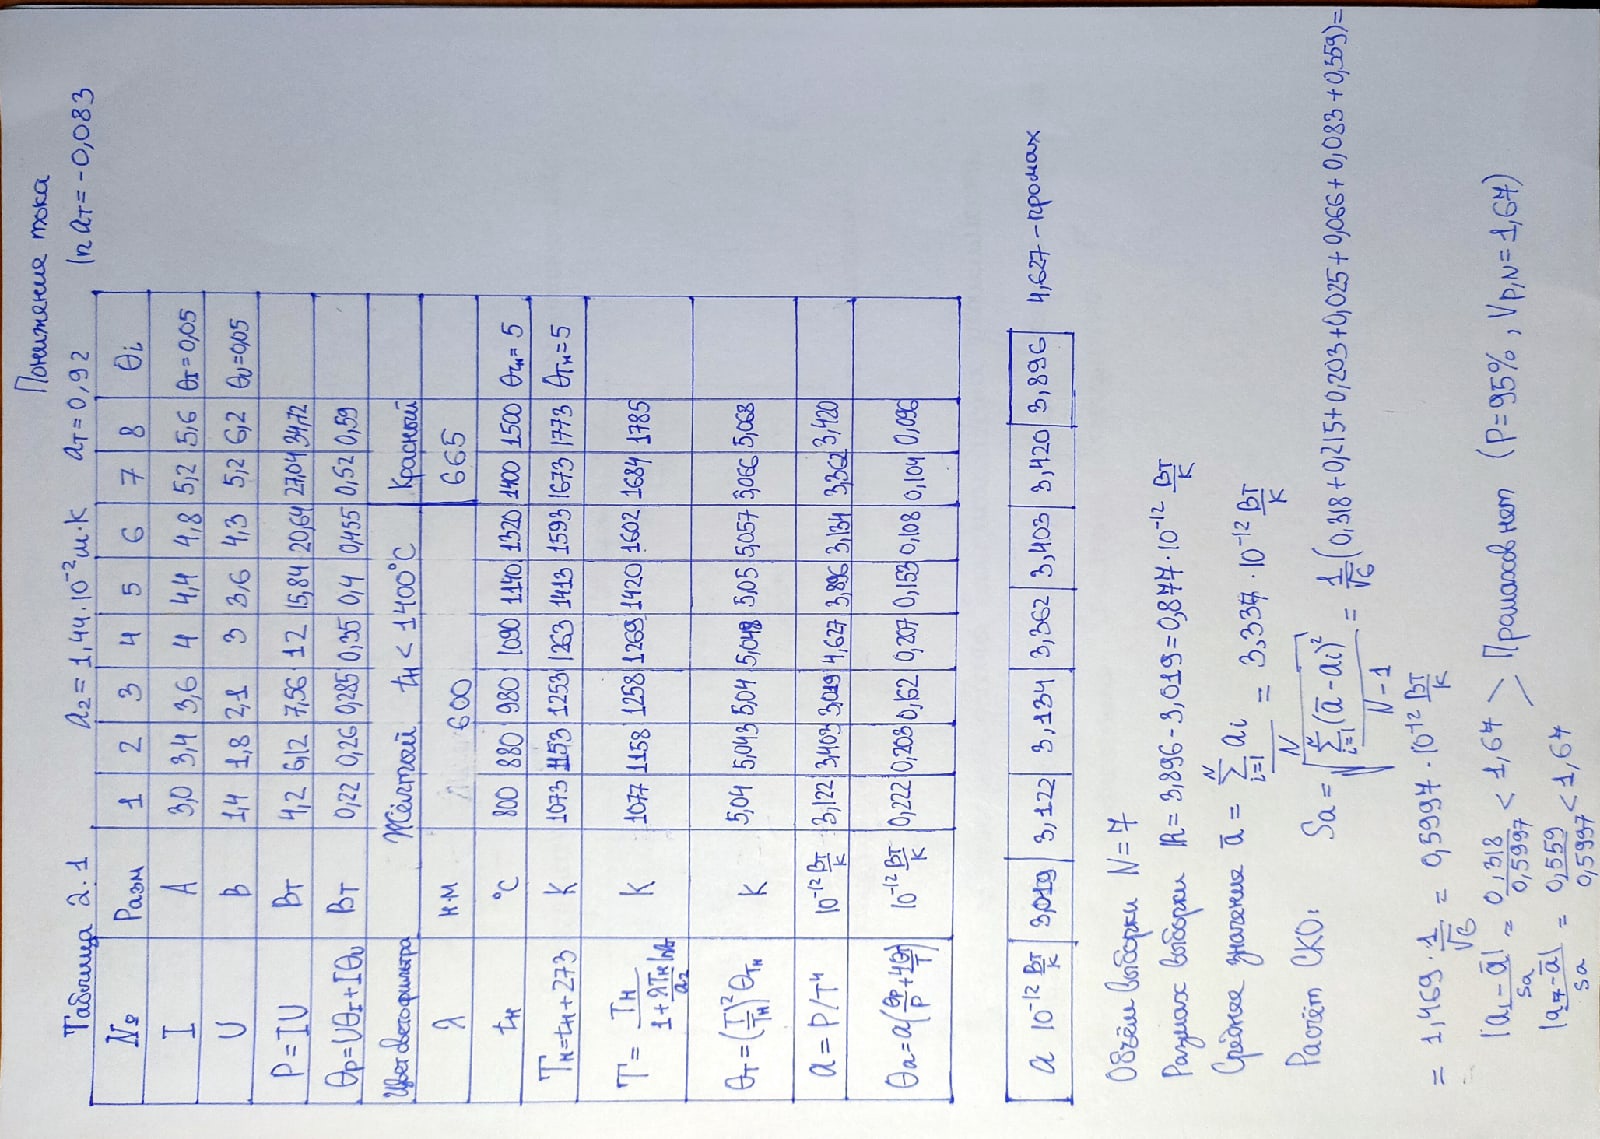 Понижение тока
Таблица 2.1 a₂ = 1,44·10⁻² м·К aт = 0,92 ln aт = -0,083
№ Разм 1 2 3 4 5 6 7 8 θi
I А 3,0 3,4 3,6 4 4,4 4,8 5,2 5,6 θI = 0,05
U В 1,4 1,8 2,1 3 3,6 4,3 5,2 6,2 θU = 0,05
P = IU Вт 4,2 6,12 7,56 12 15,84 20,64 27,04 34,72
θp = UθI + IθU Вт 0,22 0,26 0,285 0,35 0,4 0,455 0,52 0,59
Цвет светофильтра Жёлтый tн < 1400°C Красный
λ нм 600 665
tн °C 800 880 980 1090 1140 1320 1400 1500 θtн = 5
Tн = tн + 273 К 1073 1153 1253 1263 1413 1593 1673 1773 θTн = 5
T = Tн / (1 + λTн ln aт / a₂) К 1077 1158 1258 1269 1420 1602 1684 1785
θT = (T/Tн)² θTн К 5,04 5,043 5,04 5,048 5,05 5,057 5,066 5,068
a = P/T⁴ 10⁻¹² Вт/К 3,122 3,403 3,019 4,627 3,896 3,134 3,362 3,420
θa = a(θp/P + 4θT/T) 10⁻¹² Вт/К 0,222 0,203 0,162 0,207 0,153 0,108 0,104 0,096
a 10⁻¹² Вт/К 3,019 3,122 3,134 3,362 3,403 3,420 3,896 4,627 - промах
Объём выборки N = 7
Размах выборки R = 3,896 - 3,019 = 0,877·10⁻¹² Вт/К
Среднее значение a̅ = ∑ᵢ₌₁ᴺ aᵢ / N = 3,337·10⁻¹² Вт/К
Расчёт СКО: Sa = √(∑ᵢ₌₁ᴺ (a̅ - aᵢ)² / N - 1) = 1/√6 (0,318 + 0,215 + 0,203 + 0,025 + 0,066 + 0,083 + 0,559) =
= 1,469 · 1/√6 = 0,5997 · 10⁻¹² Вт/К
|a₁ - a̅| / Sa = 0,318 / 0,5997 < 1,67 > Промахов нет (P = 95%, Vp,N = 1,67)
|a₇ - a̅| / Sa = 0,559 / 0,5997 < 1,67